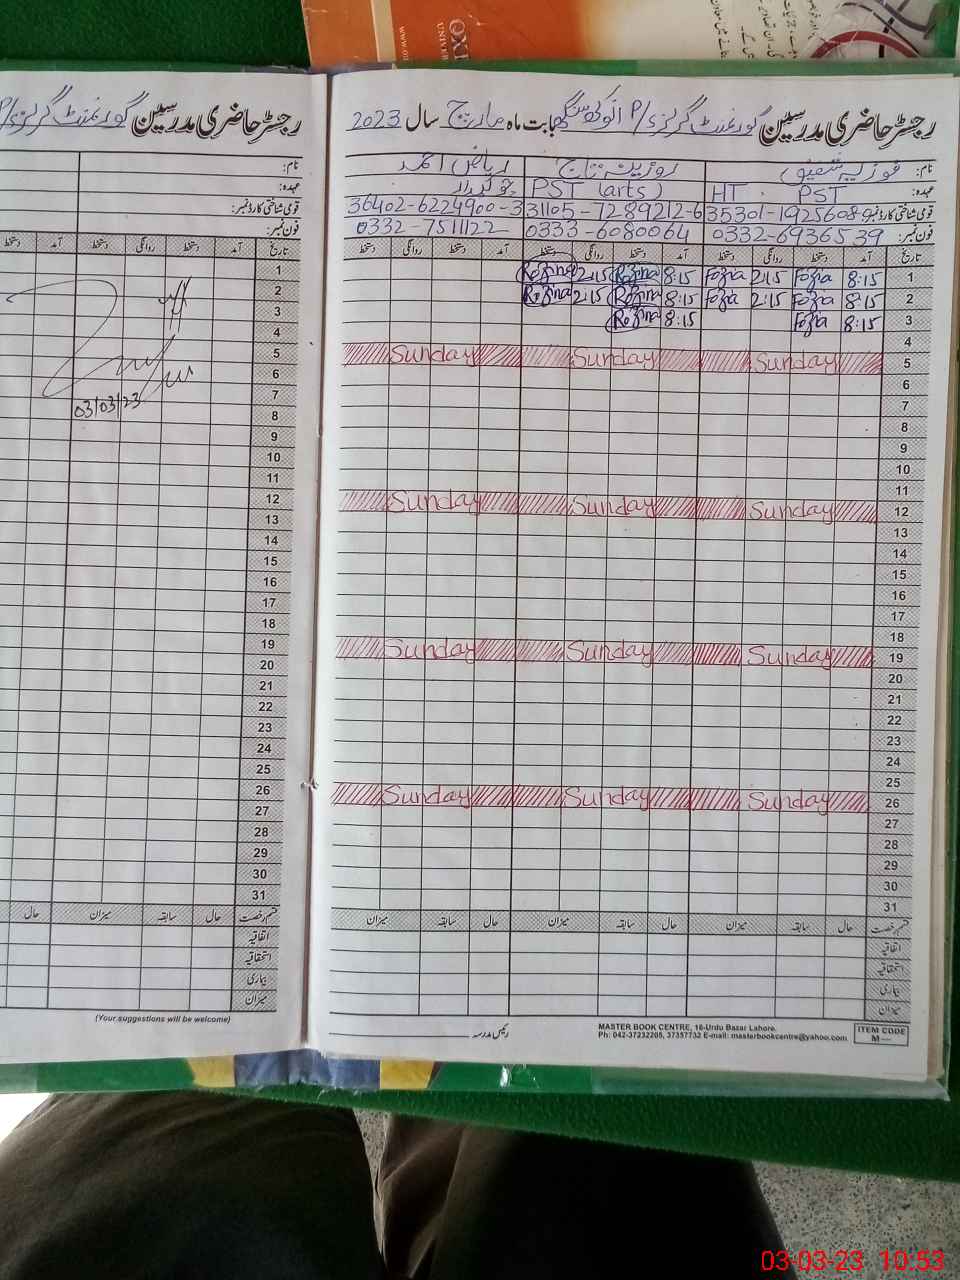 OX
UNIVER
رجسٹر حاضری مدرسین گورنمنٹ گرلز P/
نام:
عہدہ:
قومی شناختی کارڈ نمبر:
فون نمبر:
تاریخ آمد دستخط روانگی دستخط آمد
1
2
3
4
5
6
7
8
9
10
11
12
13
14
15
16
17
18
19
20
21
22
23
24
25
26
27
28
29
30
31
03/03/23
قسم رخصت حال سابقہ میزان حال
اتفاقیہ
استحقاقیہ
بیماری
میزان
(Your suggestions will be welcome)
رجسٹر حاضری مدرسین گورنمنٹ گرلز P/S بابت ماہ مارچ سال 2023
نام: فوزیہ شفیق روزینہ تاج ریاض احمد
عہدہ: HT PST PST (arts) چوکیدار
قومی شناختی کارڈ نمبر: 35301-1925608- 31105-7289212-6 36402-6224900-3
فون نمبر: 0332-6936539 0333-6080064 0332-7511122
تاریخ آمد دستخط روانگی دستخط آمد دستخط روانگی دستخط آمد دستخط روانگی دستخط
1 8:15 Fozia 2:15 Fozia 8:15 Rozina 2:15 Rozina
2 8:15 Fozia 2:15 Fozia 8:15 Rozina 2:15 Rozina
3 8:15 Fozia 8:15 Rozina
4
5 Sunday Sunday Sunday
6
7
8
9
10
11
12 Sunday Sunday Sunday
13
14
15
16
17
18
19 Sunday Sunday Sunday
20
21
22
23
24
25
26 Sunday Sunday Sunday
27
28
29
30
31
قسم رخصت حال سابقہ میزان حال سابقہ میزان حال سابقہ میزان
اتفاقیہ
استحقاقیہ
بیماری
میزان
رئیس مدرسہ
MASTER BOOK CENTRE, 16-Urdu Bazar Lahore.
Ph: 042-37232205, 37357732 E-mail: masterbookcentre@yahoo.com
ITEM CODE
M—
03-03-23 10:53